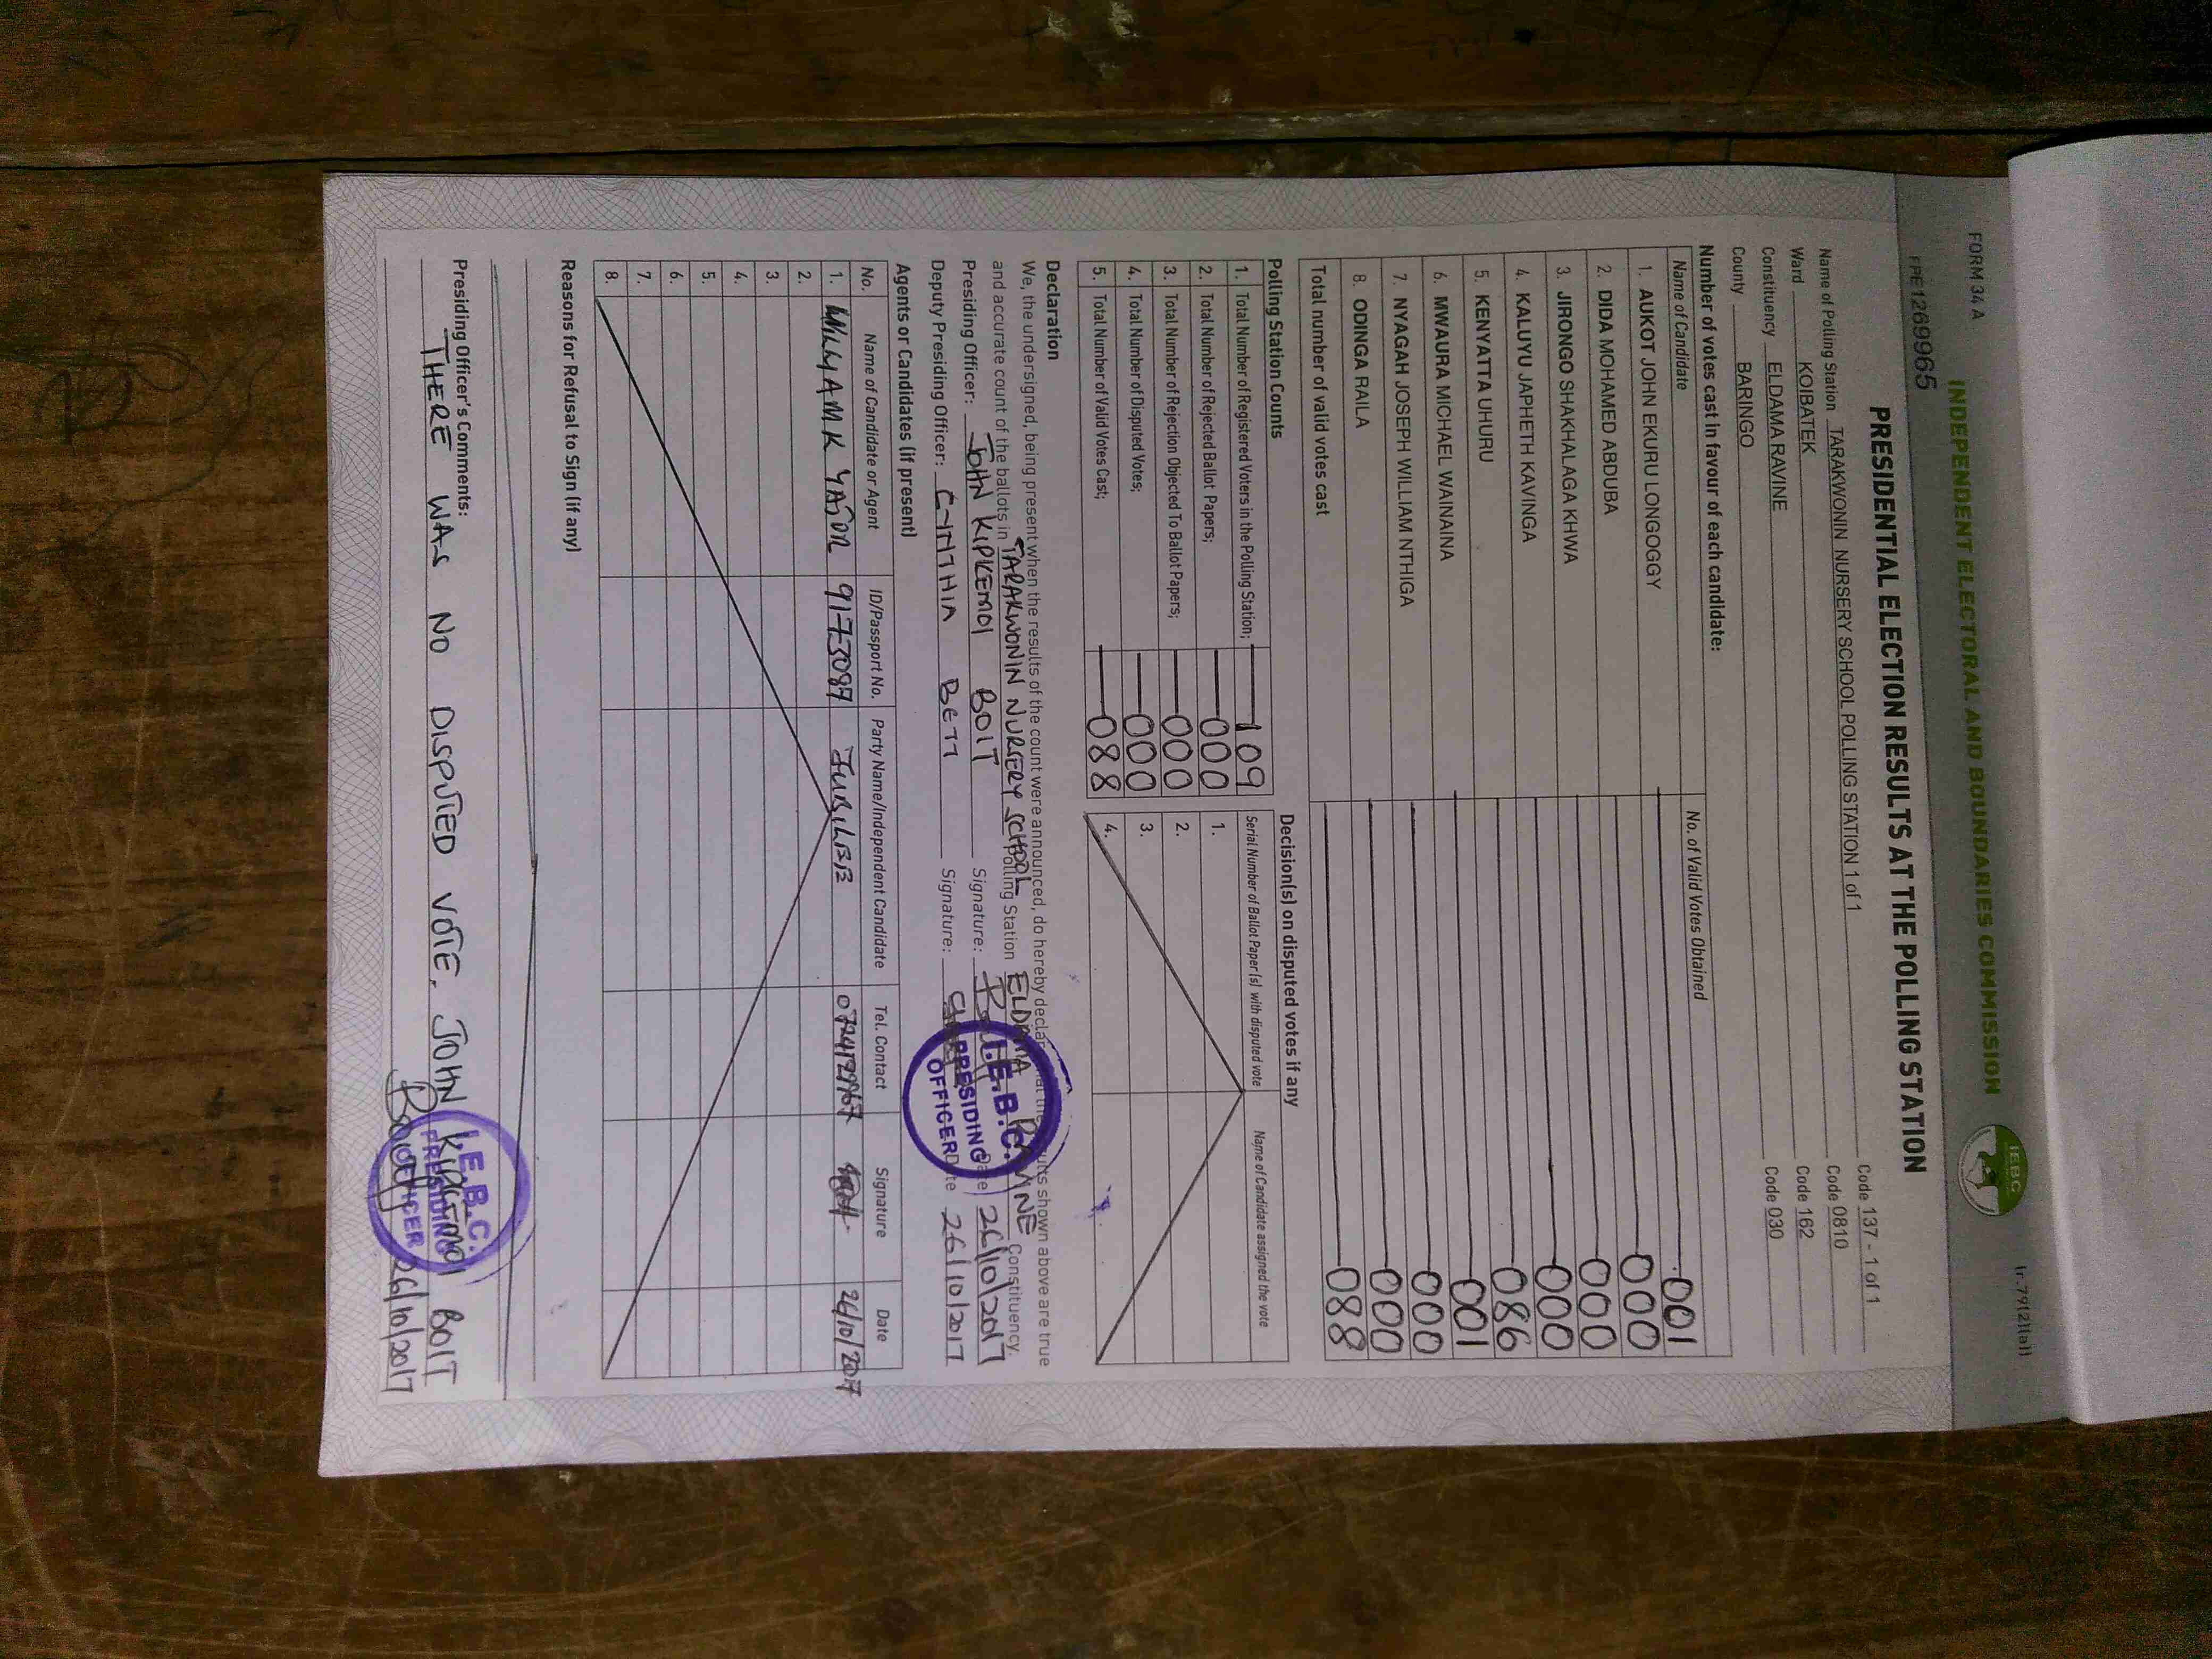 FORM 34 A
(r.79(2)(a))
INDEPENDENT ELECTORAL AND BOUNDARIES COMMISSION
IEBC
PRESIDENTIAL ELECTION RESULTS AT THE POLLING STATION
Name of Polling Station TARAKWONIN NURSERY SCHOOL POLLING STATION 1 of 1 Code 137 - 1 of 1
Ward KOIBATEK Code 0810
Constituency ELDAMA RAVINE Code 162
County BARINGO Code 030
Number of votes cast in favour of each candidate:
Name of Candidate No. of Valid Votes Obtained
1. AUKOT JOHN EKURU LONGOGGY 001
2. DIDA MOHAMED ABDUBA 000
3. JIRONGO SHAKHALAGA KHWA 000
4. KALUYU JAPHETH KAVINGA 000
5. KENYATTA UHURU 086
6. MWAURA MICHAEL WAINAINA 001
7. NYAGAH JOSEPH WILLIAM NTHIGA 000
8. ODINGA RAILA 000
Total number of valid votes cast 088
Polling Station Counts
1. Total Number of Registered Voters in the Polling Station; 109
2. Total Number of Rejected Ballot Papers; 000
3. Total Number of Rejection Objected To Ballot Papers; 000
4. Total Number of Disputed Votes; 000
5. Total Number of Valid Votes Cast; 088
Decision(s) on disputed votes if any
Serial Number of Ballot Paper(s) with disputed vote Name of Candidate assigned the vote
1.
2.
3.
4.
Declaration
We, the undersigned, being present when the results of the count were announced, do hereby declare that the results shown above are true
and accurate count of the ballots in TARAKWONIN NURSERY SCHOOL Polling Station ELDAMA RAVINE Constituency.
Presiding Officer: JOHN KIPKEMOI BOIT Signature: Date 26/10/2017
Deputy Presiding Officer: CYNTHIA BETT Signature: Date 26/10/2017
I.E.B.C. PRESIDING OFFICER
Agents or Candidates (if present)
No. Name of Candidate or Agent ID/Passport No. Party Name/Independent Candidate Tel. Contact Signature Date
1. 26/10/2017
2.
3.
4.
5.
6.
7.
8.
Reasons for Refusal to Sign (if any)
Presiding Officer's Comments:
THERE WAS NO DISPUTED VOTE. JOHN KIPKEMOI BOIT
26/10/2017
I.E.B.C. PRESIDING OFFICER